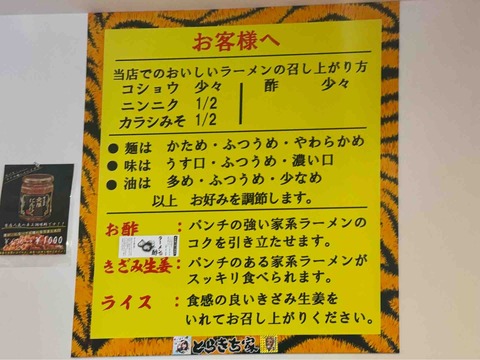 お客様へ
当店でのおいしいラーメンの召し上がり方
コショウ 少々 酢 少々
ニンニク 1/2
カラシみそ 1/2
● 麺は かため・ふつうめ・やわらかめ
● 味は うす口・ふつう・濃い口
● 油は 多め・ふつう・少なめ
以上 お好みを調節します。
お酢 :パンチの強い家系ラーメンの
コクを引き立たせます。
きざみ生姜:パンチのある家系ラーメンが
スッキリ食べられます。
ライス :食感の良いきざみ生姜を
いれてお召し上がりください。
とらきち家
¥1000